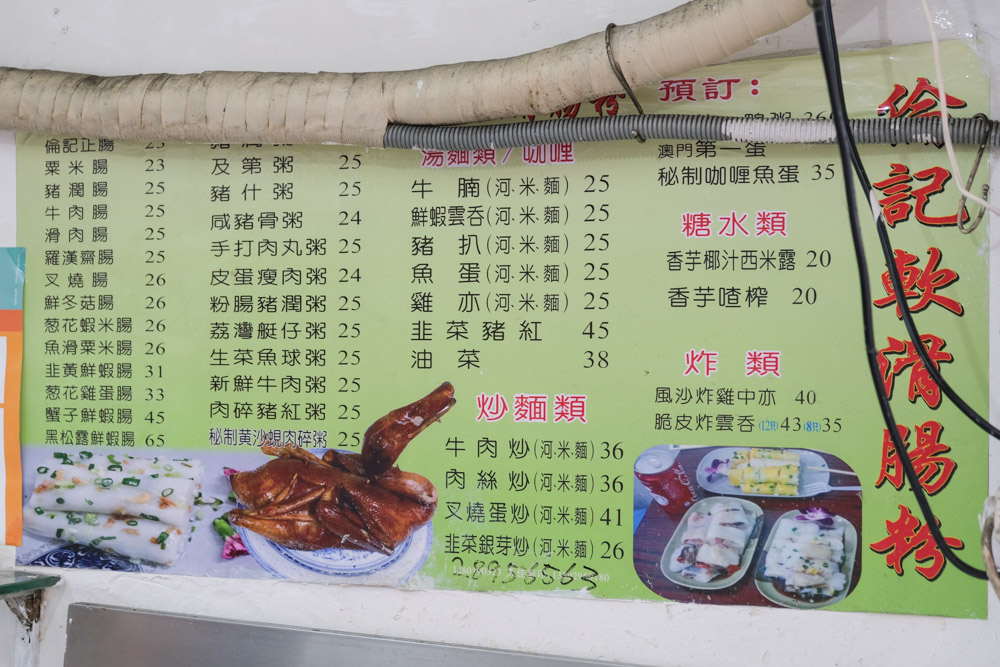 倫記正腸 23
粟米腸 23
豬潤腸 25
牛肉腸 25
滑肉腸 25
羅漢齋腸 25
叉燒腸 26
鮮冬菇腸 26
葱花蝦米腸 26
魚滑粟米腸 26
韭黃鮮蝦腸 31
葱花雞蛋腸 33
蟹子鮮蝦腸 45
黑松露鮮蝦腸 65
豬潤粥
及第粥 25
豬什粥 25
咸豬骨粥 24
手打肉丸粥 25
皮蛋瘦肉粥 24
粉腸豬潤粥 25
荔灣艇仔粥 25
生菜魚球粥 25
新鮮牛肉粥 25
肉碎豬紅粥 25
秘制黃沙蜆肉碎粥 25
湯麵類/咖喱
牛腩(河.米.麵) 25
鮮蝦雲吞(河.米.麵) 25
豬扒(河.米.麵) 25
魚蛋(河.米.麵) 25
雞亦(河.米.麵) 25
韭菜豬紅 45
油菜 38
炒麵類
牛肉炒(河.米.麵) 36
肉絲炒(河.米.麵) 36
叉燒蛋炒(河.米.麵) 41
韭菜銀芽炒(河.米.麵) 26
28956563
預訂:
澳門第一蛋
秘制咖喱魚蛋 35
糖水類
香芋椰汁西米露 20
香芋喳榨 20
炸類
風沙炸雞中亦 40
脆皮炸雲吞(12件)43(8件)35
倫記軟滑腸粉